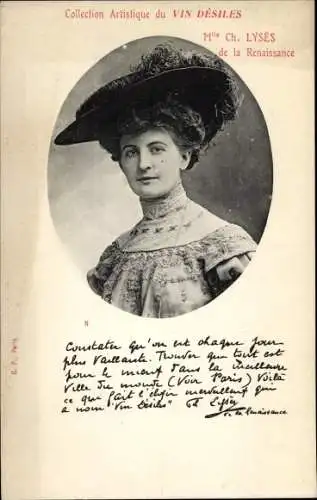 Collection Artistique du VIN DÉSILES
Mlle Ch. LYSÈS
de la Renaissance
C. P., Paris.
N
Constater qu'on est chaque jour
plus Vaillante. Trouver que tout est
pour le mieux dans la meilleure
Ville du monde (Voir Paris) Voilà
ce que fait l'élixir merveilleux qui
a nom "Vin Désiles" Ch Lysès
de la Renaissance